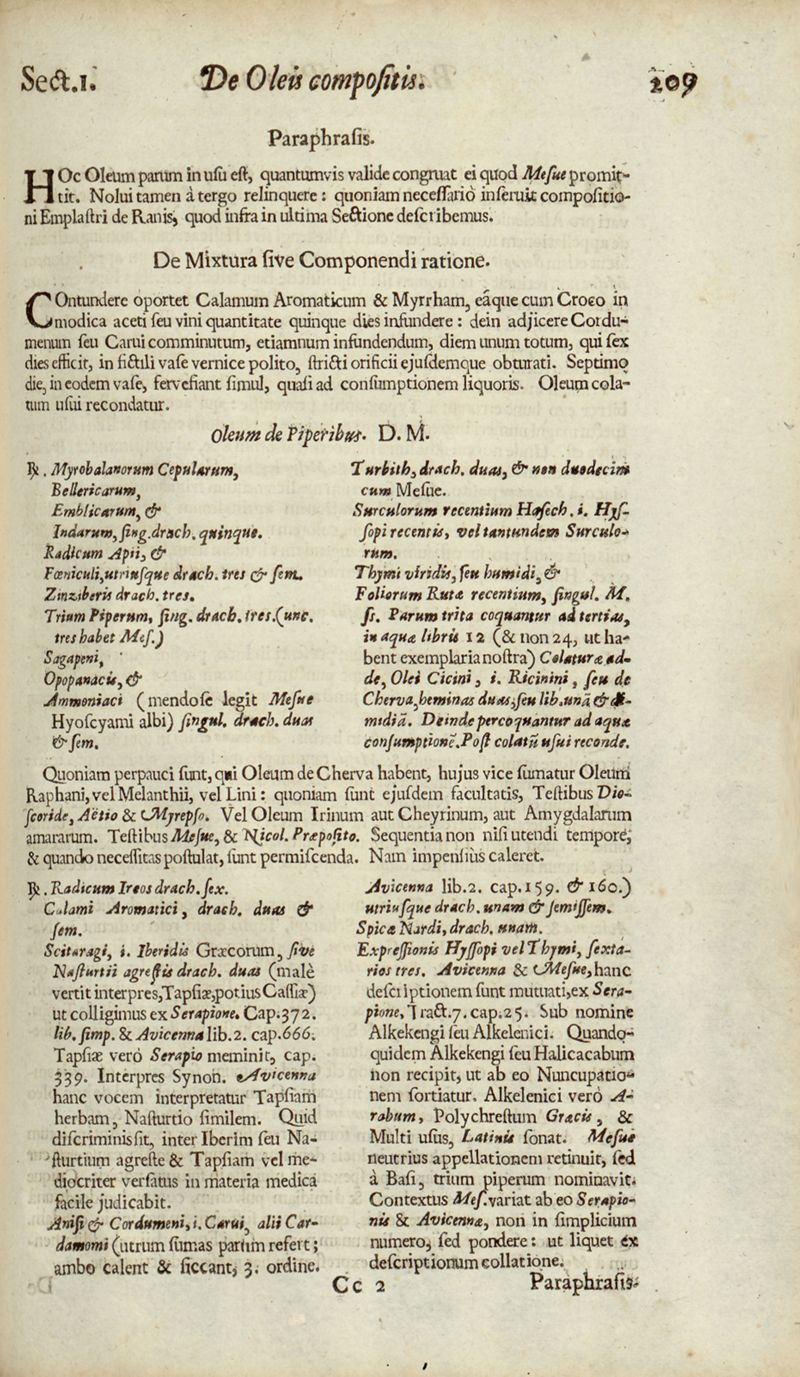 Sect.1. De Oleis compositis. 209
Paraphrasis.
HOc Oleum parum in usu est, quantumvis valide congruat ei quod Mesue promit-
tit. Nolui tamen à tergo relinquere: quoniam necessariò inseruit compositio-
ni Emplastri de Ranis, quod infra in ultima Sectione describemus.
De Mixtura sive Componendi ratione.
COntundere oportet Calamum Aromaticum & Myrrham, eáque cum Croco in
modica aceti seu vini quantitate quinque dies infundere: dein adjicere Cordu-
menum seu Carui comminutum, etiamnum infundendum, diem unum totum, qui sex
dies efficit, in fictili vase vernice polito, stricti orificii ejusdemque obturati. Septimo
die, in eodem vase, fervefiant simul, quasi ad consumptionem liquoris. Oleum cola-
tum usui recondatur.
Oleum de Piperibus. D. M.
℞. Myrobalanorum Cepularum,
Bellericarum,
Emblicarum, &
Indarum, sing. drach. quinque.
Radicum Apii, &
Fœniculi, utriusque drach. tres & sem.
Zinziberis drach. tres.
Trium Piperum, sing. drach. tres. (unc.
tres habet Mes.)
Sagapeni,
Opopanacis, &
Ammoniaci (mendose legit Mesue
Hyoscyami albi) singul. drach. duas
& sem.
Turbith, drach. duas, & non duodecim
cum Mesue.
Surculorum recentium Hasech. i. Hys-
sopi recentis, vel tantundem Surculo-
rum.
Thymi viridis, seu humidi, &
Foliorum Rutæ recentium, singul. M.
ss. Parum trita coquantur ad tertias,
in aquæ libris 12 (& non 24, ut ha-
bent exemplaria nostra) Colaturæ ad-
de, Olei Cicini, i. Ricinini, seu de
Cherva, heminas duas, seu lib. unâ & di-
midiâ. Deinde percoquantur ad aquæ
consumptionē. Post colatū usui reconde.
Quoniam perpauci sunt, qui Oleum de Cherva habent, hujus vice sumatur Oleum
Raphani, vel Melanthii, vel Lini: quoniam sunt ejusdem facultatis, Testibus Dio-
scoride, Aëtio & Myrepso. Vel Oleum Irinum aut Cheyrinum, aut Amygdalarum
amararum. Testibus Mesue, & Nicol. Præposito. Sequentia non nisi utendi tempore,
& quando necessitas postulat, sunt permiscenda. Nam impensiùs caleret.
℞. Radicum Ireos drach. sex.
Calami Aromatici, drach. duas &
sem.
Scitaragi, i. Iberidis Græcorum, sive
Nasturtii agrestis drach. duas (malè
vertit interpres, Tapsiæ, potius Cassiæ)
ut colligimus ex Serapione. Cap. 372.
lib. simp. & Avicenna lib. 2. cap. 666.
Tapsiæ verò Serapio meminit, cap.
339. Interpres Synon. Avicenna
hanc vocem interpretatur Tapsiam
herbam, Nasturtio similem. Quid
discriminis sit, inter Iberim seu Na-
sturtium agreste & Tapsiam vel me-
diocriter versatus in materia medica
facile judicabit.
Anisi & Cordumeni, i. Carui, alii Car-
damomi (utrum sumas parùm refert;
ambo calent & siccant, 3. ordine.
Avicenna lib. 2. cap. 159. & 160.)
utriusque drach. unam & semissem.
Spicæ Nardi, drach. unam.
Expressionis Hyssopi vel Thymi, sexta-
rios tres. Avicenna & Mesue, hanc
descriptionem sunt mutuati, ex Sera-
pione, Tract. 7. cap. 25. Sub nomine
Alkekengi seu Alkelenici. Quando-
quidem Alkekengi seu Halicacabum
non recipit, ut ab eo Nuncupatio-
nem sortiatur. Alkelenici verò A-
rabum, Polychrestum Græcis, &
Multi usus, Latinis sonat. Mesue
neutrius appellationem retinuit, sed
à Basi, trium piperum nominavit.
Contextus Mes. variat ab eo Serapio-
nis & Avicennæ, non in simplicium
numero, sed pondere: ut liquet ex
descriptionum collatione.
Cc 2 Paraphrasis-